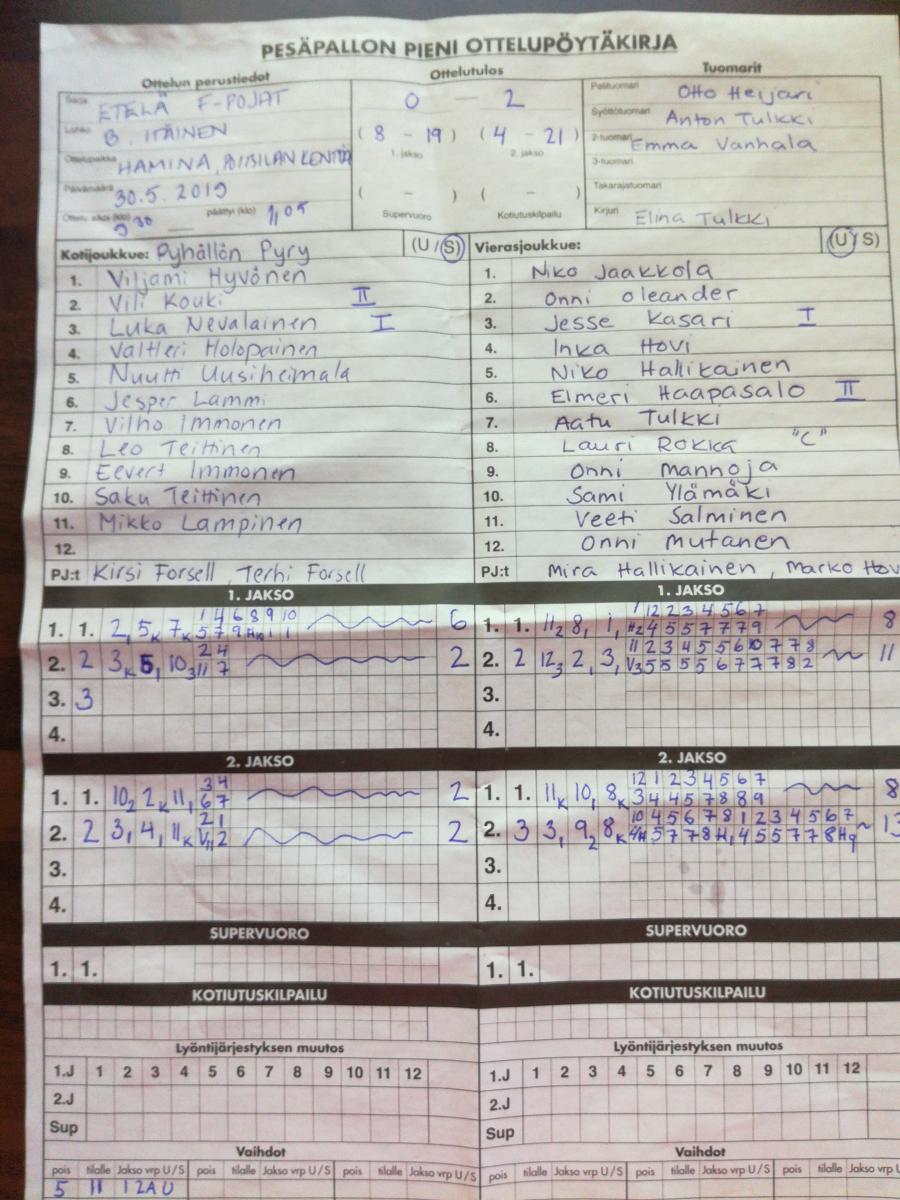 PESÄPALLON PIENI OTTELUPÖYTÄKIRJA
Ottelun perustiedot Ottelutulos Tuomarit
Sarja ETELÄ F-POJAT
Lohko B. ITÄINEN
Ottelupaikka HAMINA,
Päivämäärä 30.5.2019
Ottelu alkoi (klo) 9 30 päättyi (klo)
0 - 2
( 8 - 19 ) ( 4 - 21 )
1. jakso 2. jakso
( - ) ( - )
Supervuoro Kotiutuskilpailu
Pelituomari Otto Heijari
Syöttötuomari Anton Tulkki
2-tuomari Emma Vanhala
3-tuomari
Takarajatuomari
Kirjuri Elina Tulkki
Kotijoukkue: Pyhällön Pyry (U / S)
1. Viljami Hyvönen
2. Vili Kouki II
3. Luka Nevalainen I
4. Valtteri Holopainen
5. Nuutti Uusiheimala
6. Jesper Lammi
7. Vilho Immonen
8. Leo Teittinen
9. Eevert Immonen
10. Saku Teittinen
11. Mikko Lampinen
12.
PJ:t Kirsi Forsell, Terhi Forsell
Vierasjoukkue: (U / S)
1. Niko Jaakkola
2. Onni oleander
3. Jesse Kasari I
4. Inka Hovi
5. Niko Hallikainen
6. Elmeri Haapasalo II
7. Aatu Tulkki
8. Lauri Rokka "C"
9. Onni mannoja
10. Sami Ylämäki
11. Veeti Salminen
12. Onni mutanen
PJ:t Mira Hallikainen, Marko Hov
1. JAKSO
1 4 6 8 9 10
1. 1. 2, 5K 7K 6
2 4
2. 2 3K 5, 10 3 11 7 2
3. 3
4.
1. JAKSO
1 12 2 3 4 5 6 7
1. 1. 11 2 8, 1, H2 4 5 5 7 7 7 9 8
11 2 3 4 5 5 6 10 7 7 8
2. 2 12 3 2, 3, V3 5 5 5 5 6 7 7 7 8 2 11
3.
4.
2. JAKSO
3 4
1. 1. 10 2 2K 11, 6 7 2
2 1
2. 2 3, 4, 11K 2
3.
4.
2. JAKSO
12 1 2 3 4 5 6 7
1. 1. 11K 10, 8K 3 4 4 5 7 8 8 9 8
10 4 5 6 7 8 1 2 3 4 5 6 7
2. 3 3, 9 2 8K 4H 5 7 7 8 H, 4 5 5 7 7 8 H9 13
3.
4.
SUPERVUORO SUPERVUORO
1. 1. 1. 1.
KOTIUTUSKILPAILU KOTIUTUSKILPAILU
Lyöntijärjestyksen muutos Lyöntijärjestyksen muutos
1.J 1 2 3 4 5 6 7 8 9 10 11 12 1.J 1 2 3 4 5 6 7 8 9 10 11 12
2.J 2.J
Sup Sup
Vaihdot Vaihdot
pois tilalle Jakso vrp U/S pois tilalle Jakso vrp U/S pois tilalle Jakso vrp U/S pois tilalle Jakso vrp U/S pois tilalle Jakso vrp U/S pois tilalle Jakso vrp U
5 11 1 2A U